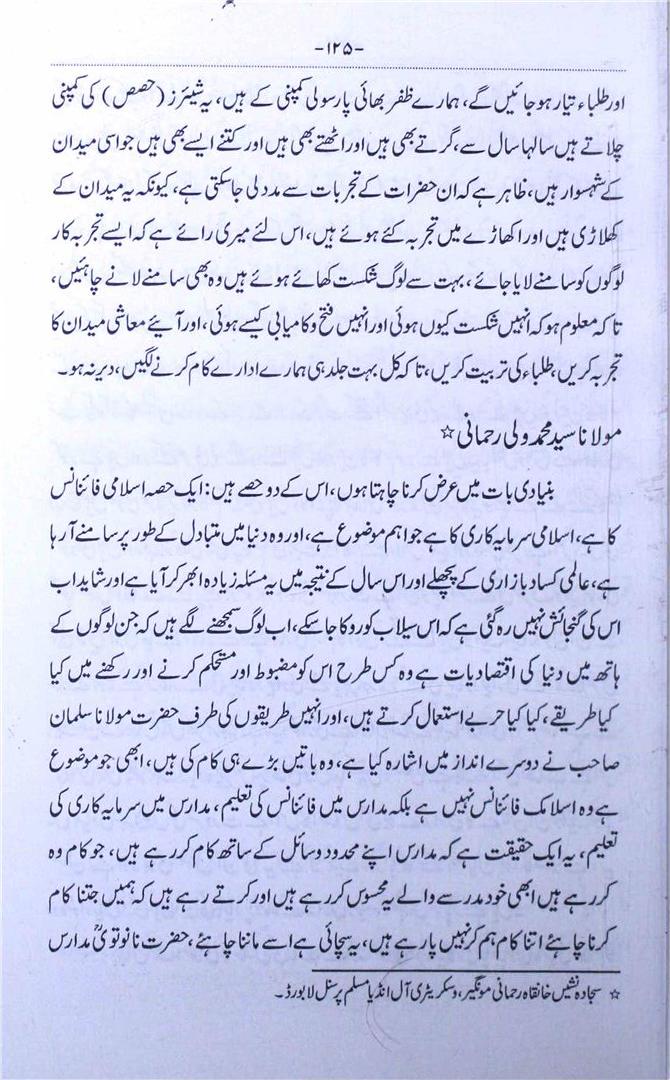 -۱۲۵-
اور طلباء تیار ہو جائیں گے، ہمارے ظفر بھائی پارسولی کمپنی کے ہیں، یہ شیئرز (حصص) کی کمپنی
چلاتے ہیں سالہا سال سے، گرتے بھی ہیں اور اٹھتے بھی ہیں اور کتنے ایسے بھی ہیں جو اسی میدان
کے شہسوار ہیں، ظاہر ہے کہ ان حضرات کے تجربات سے مدد لی جاسکتی ہے، کیونکہ یہ میدان کے
کھلاڑی ہیں اور اکھاڑے میں تجربہ کئے ہوئے ہیں، اس لئے میری رائے ہے کہ ایسے تجربہ کار
لوگوں کو سامنے لایا جائے، بہت سے لوگ شکست کھائے ہوئے ہیں وہ بھی سامنے لانے چاہئیں،
تاکہ معلوم ہو کہ انہیں شکست کیوں ہوئی اور انہیں فتح وکامیابی کیسے ہوئی، اور آیئے معاشی میدان کا
تجربہ کریں، طلباء کی تربیت کریں، تاکہ کل بہت جلد ہی ہمارے ادارے کام کرنے لگیں، دیر نہ ہو۔
مولانا سید محمد ولی رحمانی ☆
بنیادی بات میں عرض کرنا چاہتا ہوں، اس کے دو حصے ہیں: ایک حصہ اسلامی فائنانس
کا ہے، اسلامی سرمایہ کاری کا ہے جو اہم موضوع ہے، اور وہ دنیا میں متبادل کے طور پر سامنے آرہا
ہے، عالمی کساد بازاری کے پچھلے اور اس سال کے نتیجہ میں یہ مسئلہ زیادہ ابھر کر آیا ہے اور شاید اب
اس کی گنجائش نہیں رہ گئی ہے کہ اس سیلاب کو روکا جاسکے، اب لوگ سمجھنے لگے ہیں کہ جن لوگوں کے
ہاتھ میں دنیا کی اقتصادیات ہے وہ کس طرح اس کو مضبوط اور مستحکم کرنے اور رکھنے میں کیا
کیا طریقے، کیا کیا حربے استعمال کرتے ہیں، اور انہیں طریقوں کی طرف حضرت مولانا سلمان
صاحب نے دوسرے انداز میں اشارہ کیا ہے، وہ باتیں بڑے ہی کام کی ہیں، ابھی جو موضوع
ہے وہ اسلامک فائنانس نہیں ہے بلکہ مدارس میں فائنانس کی تعلیم، مدارس میں سرمایہ کاری کی
تعلیم، یہ ایک حقیقت ہے کہ مدارس اپنے محدود وسائل کے ساتھ کام کررہے ہیں، جو کام وہ
کررہے ہیں ابھی خود مدرسے والے یہ محسوس کررہے ہیں اور کرتے رہے ہیں کہ ہمیں جتنا کام
کرنا چاہئے اتنا کام ہم کر نہیں پارہے ہیں، یہ سچائی ہے اسے ماننا چاہئے، حضرت نانوتویؒ مدارس
☆ سجادہ نشیں خانقاہ رحمانی مونگیر، وسکریٹری آل انڈیا مسلم پرسنل لا بورڈ۔